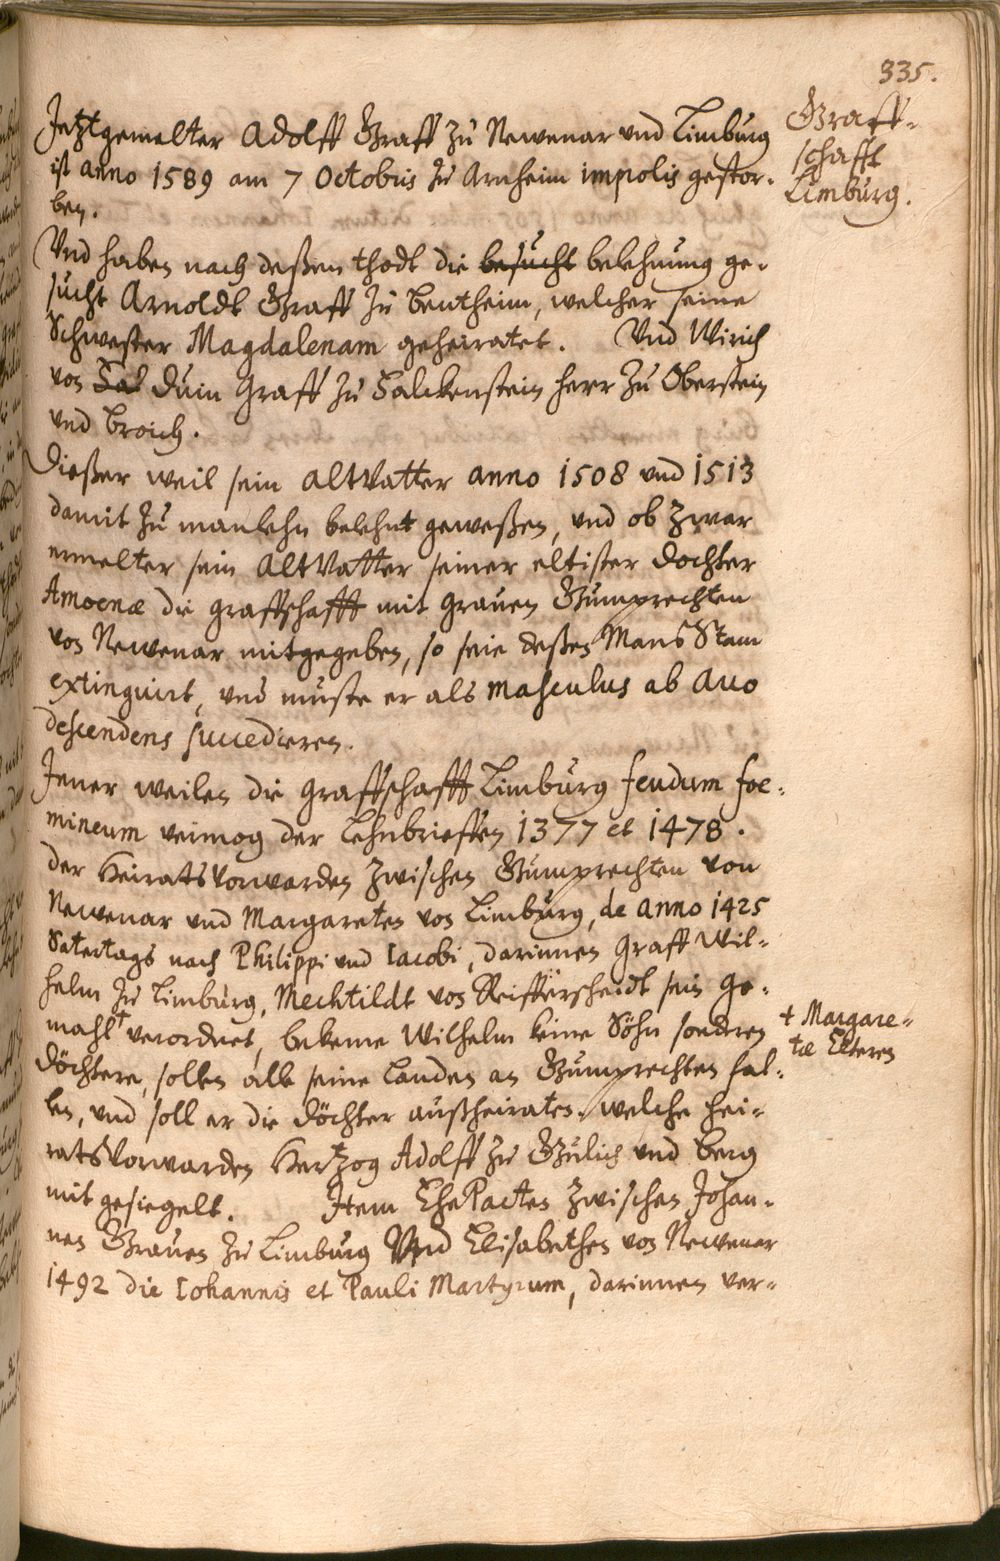 335.
Graff-
schafft
Limburg.
Jetztgemelter Adolff Graff zu Newenar und Limburg
ist anno 1589 am 7 Octobris zu Arnheim improlis gestor-
ben.
Vnd haben nach deßen thodt die besucht belehnung ge-
sucht Arnoldt Graff zu Bentheim, welcher seine
Schwester Magdalenam geheiratet. Vnd Wirich
von Duin Graff zu Falckenstein Herr zu Oberstein
vnd Broich.
Dießer weil sein AltVatter anno 1508 vnd 1513
damit zu manlehn belehnt geweßen, vnd ob zwar
ermelter sein AltVatter seiner eltister Dochter
Amoenæ die graffschafft mit Grauen Gumprechten
von Newenar mitgegeben, so seie deßen Mans Stam
extinguirt, vnd muste er als masculus ab auo
descendens succedieren.
Jener weilen die graffschafft Limburg feudum foe-
mineum vermog der Lehnbrieffen 1377 et 1478.
der HeiratsVorwarden zwischen Gumprechten von
Newenar vnd Margareten von Limburg, de anno 1425
Satertags nach Philippi vnd Iacobi, darinnen Graff Wil-
helm zu Limburg, Mechtildt von Reifferscheidt sein Ge-
mahl † verordnet, bekeme Wilhelm keine Söhn sondren
† Margare-
tæ Elteren
Döchtere, sollen alle seine Landen an Gumprechten fal-
len, vnd soll er die Döchter außheiraten. welche Hei-
ratsVorwarden Hertzog Adolff zu Gülich vnd Berg
mit gesiegelt. Item EhePacten zwischen Johan-
nen Grauen zu Limburg Vnd Elisabethen von Newenar
1492 die Iohannis et Pauli Martyrum, darinnen ver-